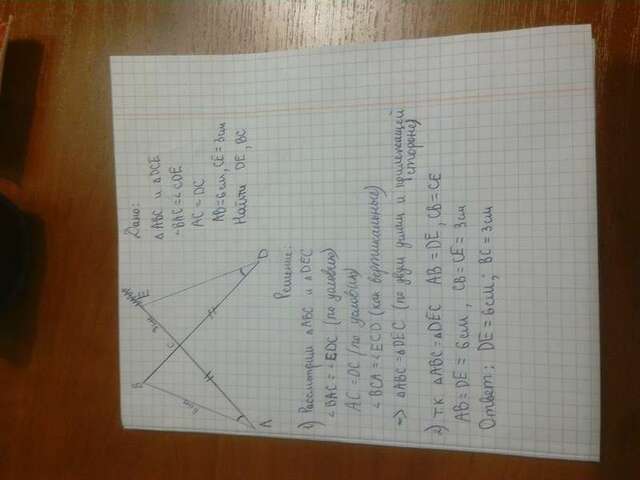 B
E
3см
C
6см
A
D
Дано:
△ABC и △DCE
∠BAC=∠CDE
AC = DC
AB=6см, CE=3см
Найти DE, BC
Решение:
1) Рассмотрим △ABC и △DEC
∠BAC=∠EDC (по условию)
AC=DC (по условию)
∠BCA=∠ECD (как вертикальные)
=> △ABC=△DEC (по двум углам и прилежащей
стороне)
2) т.к. △ABC=△DEC AB=DE, CB=CE
AB=DE=6см, CB=CE=3см
Ответ: DE=6см; BC=3см